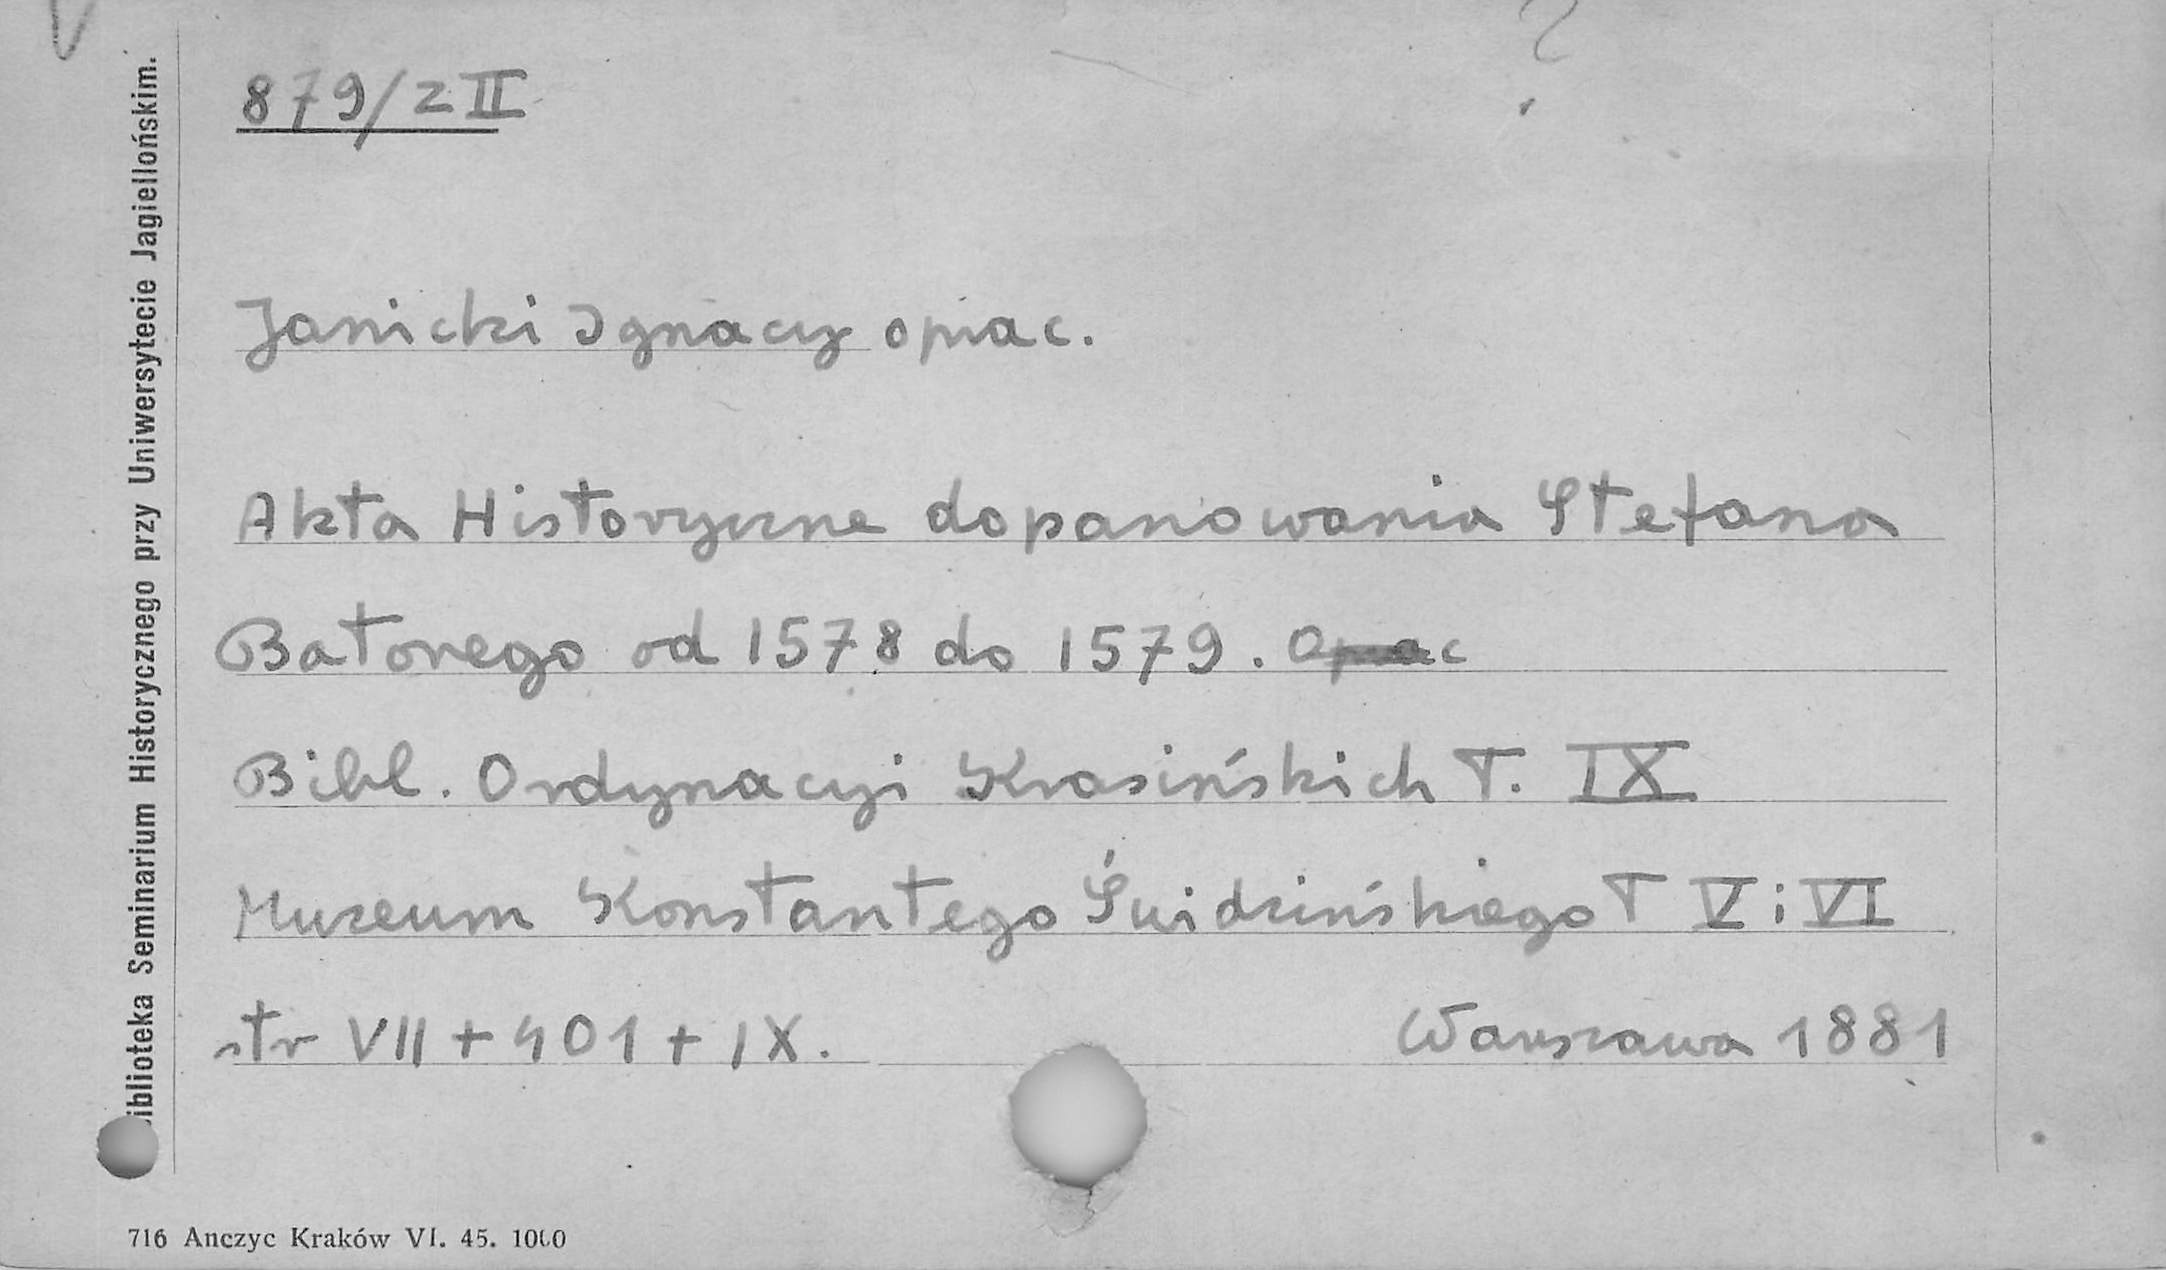 ?
879/z II
Janicki Ignacy oprac.
Akta Historyczne do panowania Stefana
Batorego od 1578 do 1579. Oprac
Bibl. Ordynacyi Krasińskich T. IX
Muzeum Konstantego Świdzińskiego T V i VI
str VII + 401 + IX.
Warszawa 1881
iblioteka Seminarium Historycznego przy Uniwersytecie Jagiellońskim.
716 Anczyc Kraków VI. 45. 1000